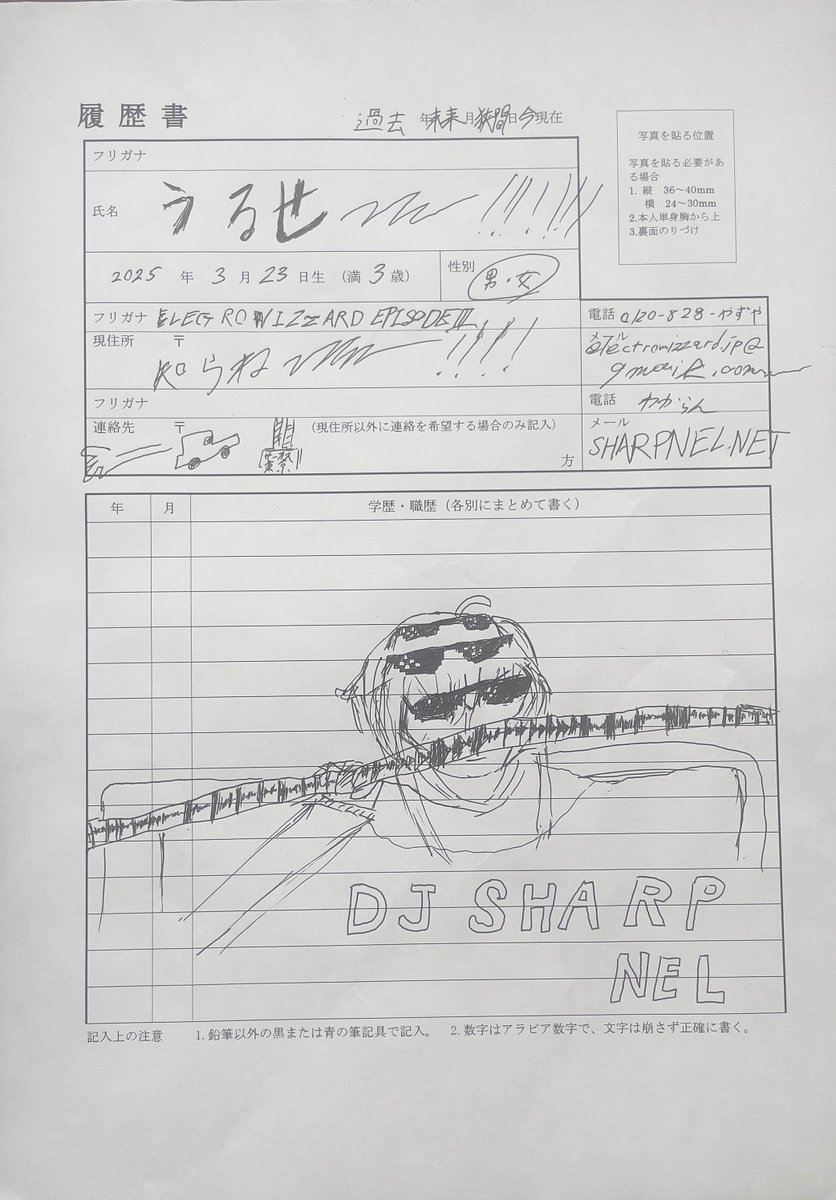 履歴書
過去 年 未来 月 狭間 日 今 現在
写真を貼る位置
写真を貼る必要があ
る場合
1. 縦 36～40mm
横 24～30mm
2.本人単身胸から上
3.裏面のりづけ
フリガナ
氏名 うるせ 〜 !!!!!!
2025 年 3 月 23 日生 (満 3 歳)
性別 男・女
フリガナ ELECTRO WIZZARD EPISODE III
電話 0120-828-やずや
現住所 〒
知らね 〜 !!!!
メール
electrowizzard.jp@
gmail.com
フリガナ
電話 わからん
連絡先 〒 (現住所以外に連絡を希望する場合のみ記入)
方
メール
SHARPNEL.NET
年 月 学歴・職歴 (各別にまとめて書く)
DJ SHARP
NEL
記入上の注意 1.鉛筆以外の黒または青の筆記具で記入。 2.数字はアラビア数字で、文字は崩さず正確に書く。